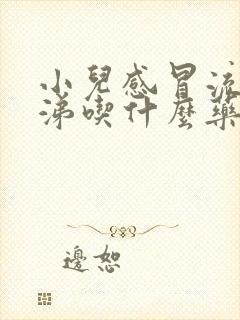 小兒感冒流
涕喫什麼藥
邊恕